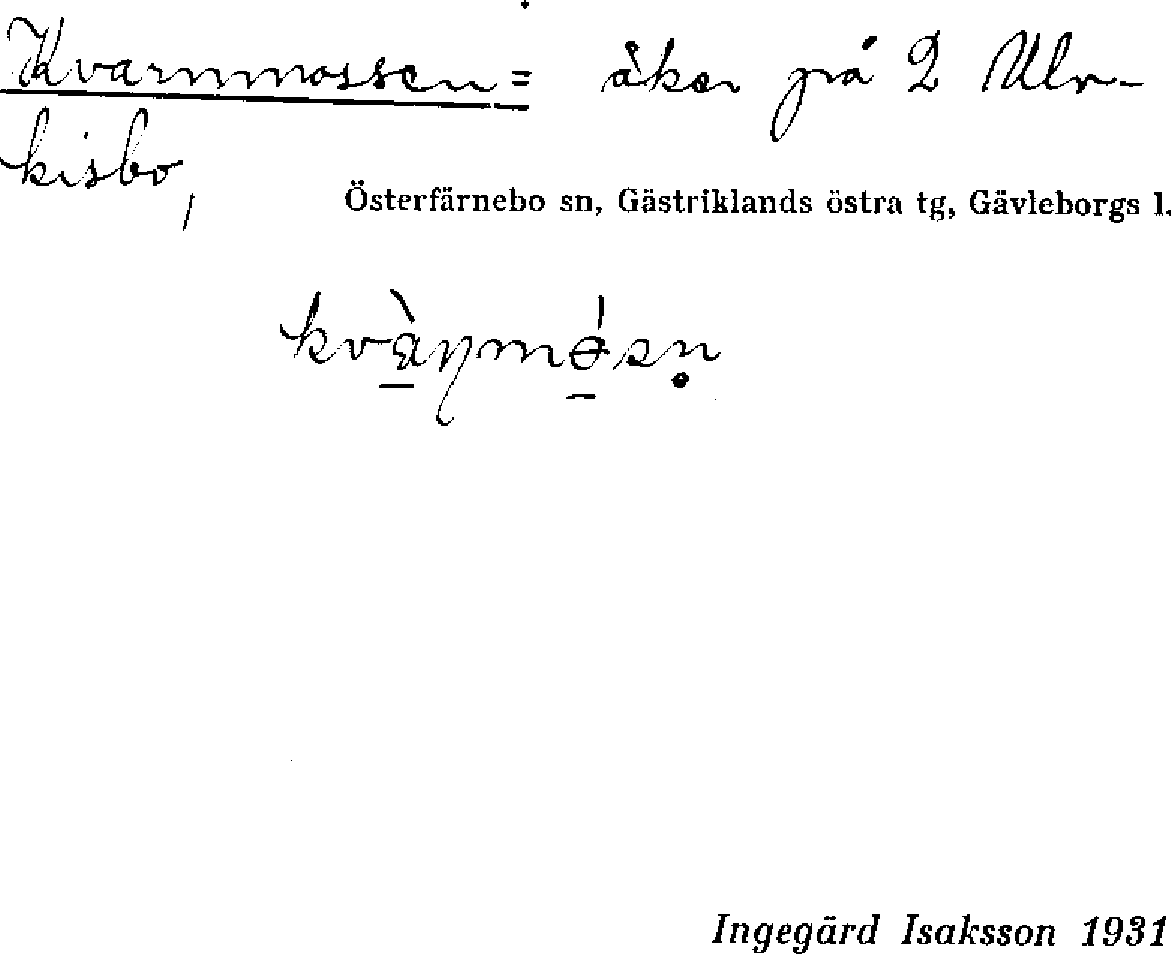 Kvarnmossen = åker på 2 Ulr-
kisbo,
Österfärnebo sn, Gästriklands östra tg, Gävleborgs l.
kvàɳmɵ́sn̥
Ingegärd Isaksson 1931